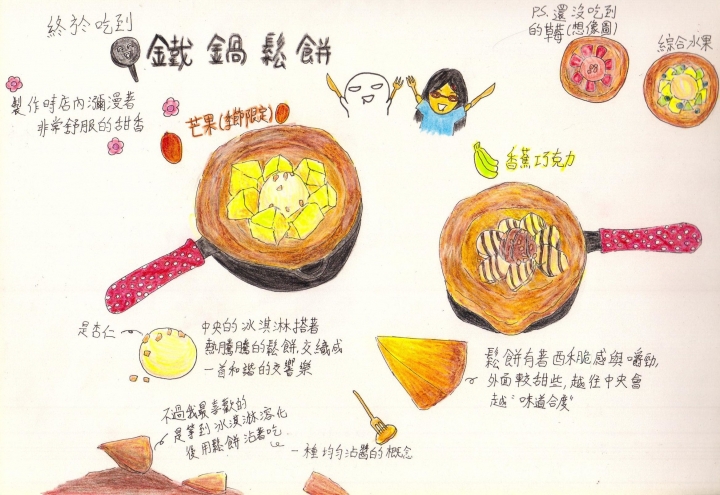 終於吃到
鐵鍋鬆餅
P.S.還沒吃到
的草莓(想像圖)
綜合水果
製作時店內瀰漫著
非常舒服的甜香
芒果(季節限定)
香蕉巧克力
是杏仁
中央的冰淇淋搭著
熱騰騰的鬆餅,交織成
一首和諧的交響樂
鬆餅有著酥脆感與嚼勁,
外面較甜些,越往中央會
越"味道合度"
不過我最喜歡的
是等到冰淇淋溶化
後用鬆餅沾著吃
一種均勻沾醬的概念